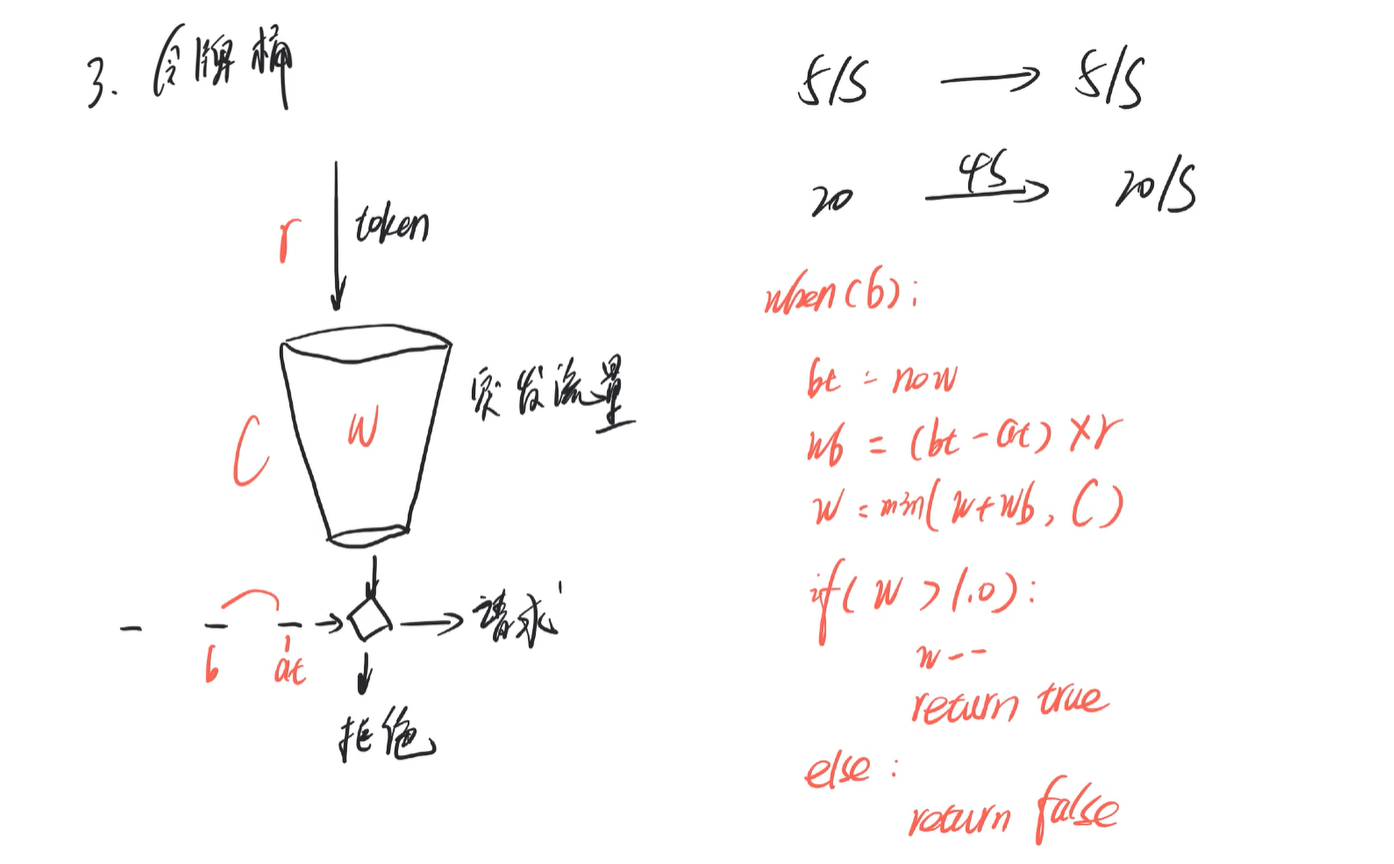 3. 令牌桶
r
token
C
W
突发流量
b
at
请求
拒绝
5/S → 5/S
4S
20 → 20/S
when(b):
bt = now
wb = (bt - at) × r
w = min(w+wb, C)
if( w > 1.0):
w--
return true
else:
return false